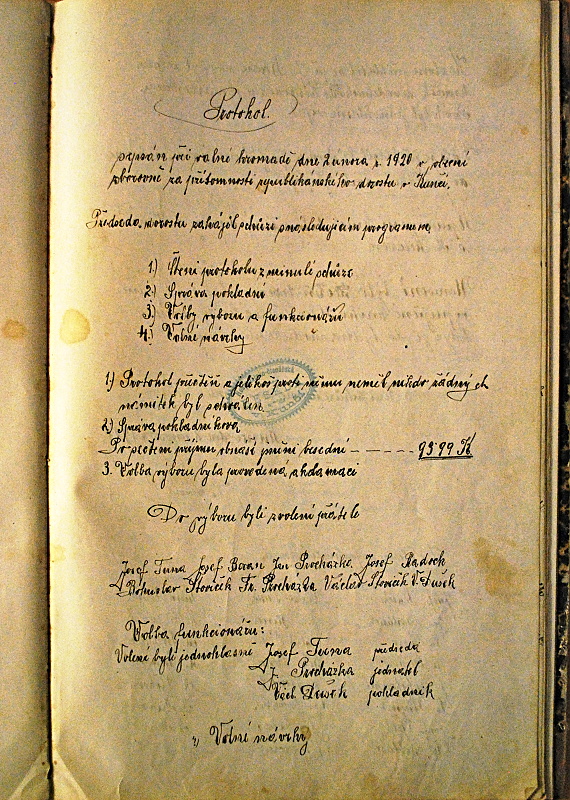 Protokol.
psán při valné hromadě dne 2 února r. 1920 v obecní
sborovně za přítomnosti republikánského dorostu v Kunčí.
Předseda dorostu zahájil schůzi s následujícím programem
1.) Čtení protokolu z minulé schůze
2.) Správa pokladní
3.) Volby výboru a funkcionářů
4.) Volné návrhy
1.) Protokol přečten a jelikož proti němu neměl nikdo žádných
námitek byl schválen
2.) Správa pokladníkova
Po sečtení příjmu obnáší jmění besední - - - - - 93·99 K
3. Volba výboru byla provedená aklamací
Do výboru byli zvolení přátelé
Josef Tuma Josef Baran Jan Procházka, Josef Radoch
Bohuslav Storček Fr. Procházka Václav Storček V. Dušek
Volba funkcionářů:
Volení byli jednohlasně Josef Tuma předseda
J. Procházka jednatel
Václ. Dušek pokladník
Volné návrhy